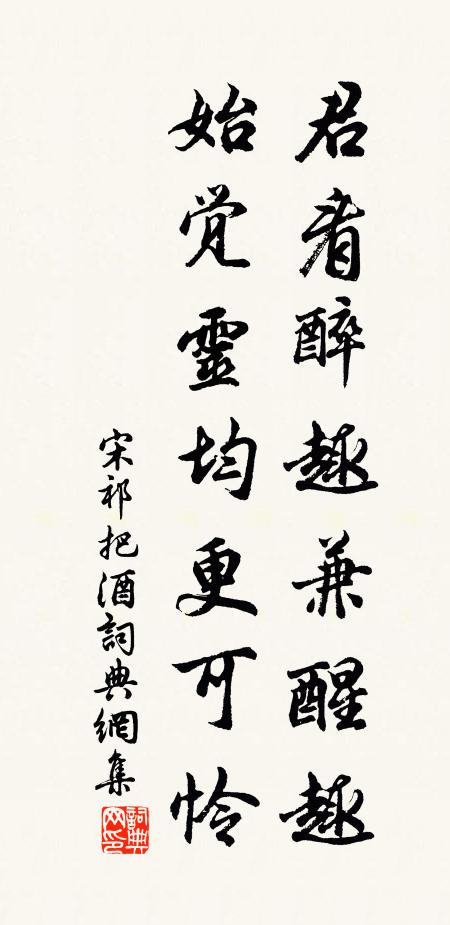 君看醉趣兼醒趣
始觉靈均更可怜
宋祁把酒詞典網集
詞典網印